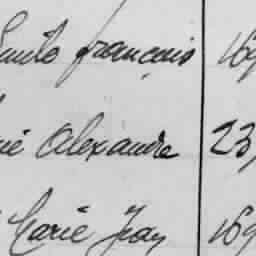 Emile françois 169
Alexandre 23
Marie Jean 169